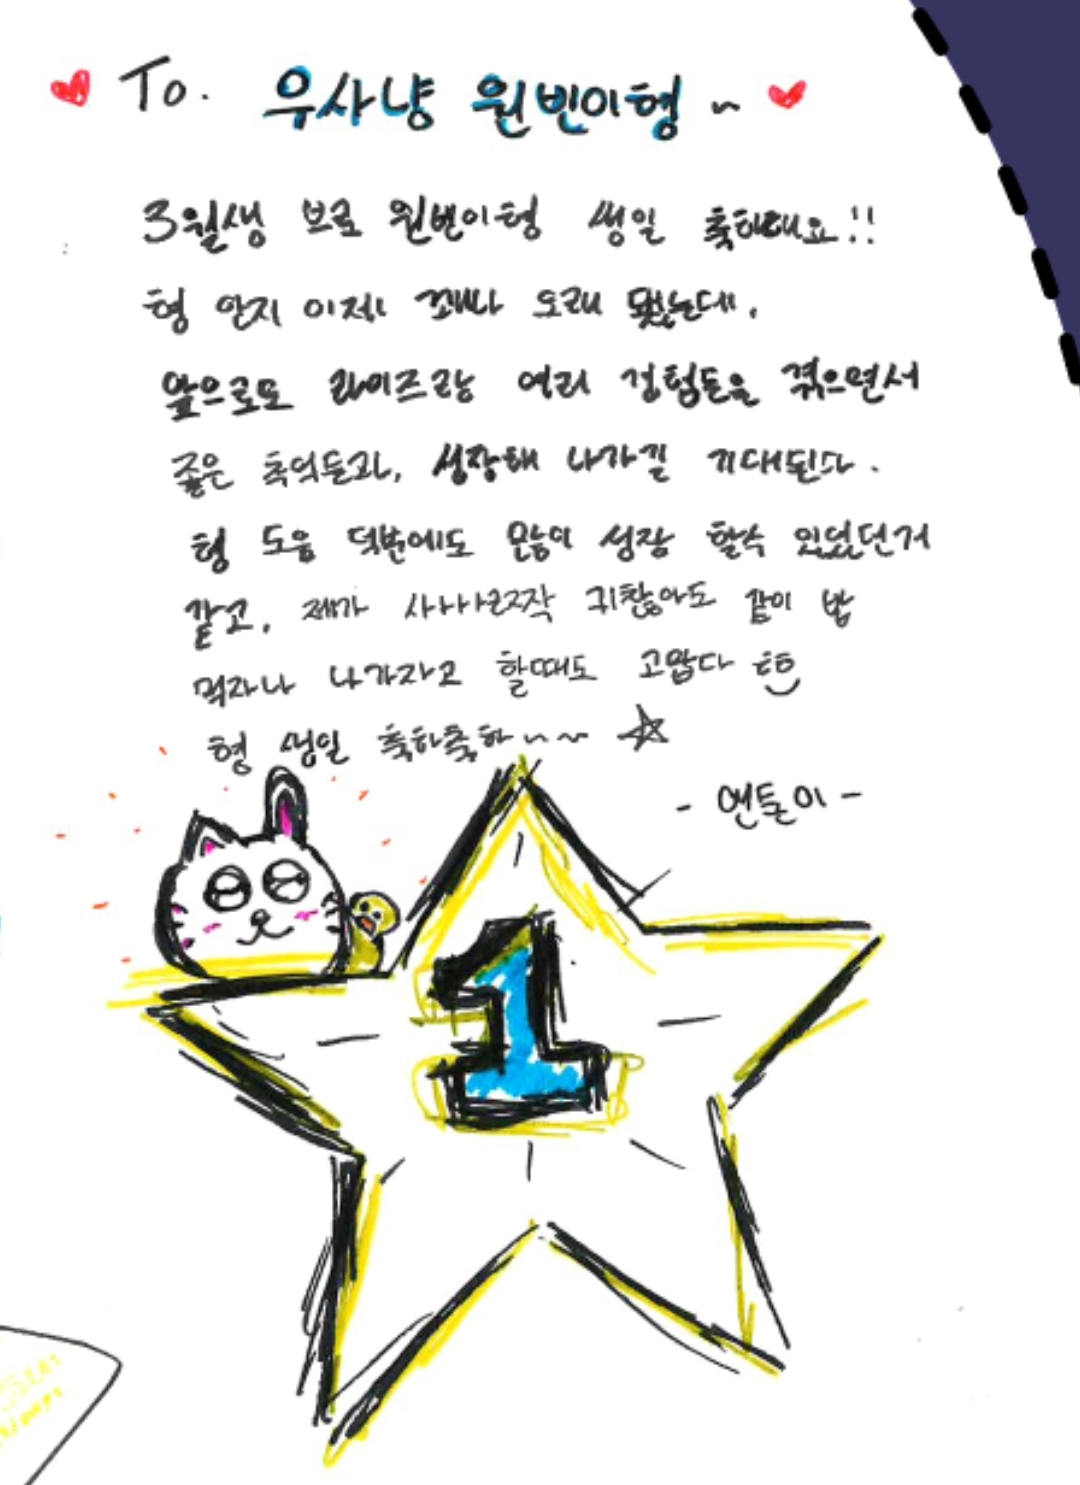 To. 우사냥 원빈이형~
3월생 브로 원빈이형 생일 축하해요!!
형 안지 이제 꽤나 오래 됐는데,
앞으로도 라이즈랑 여러 경험들을 겪으면서
좋은 추억들과, 성장해 나가길 기대된다.
형 도움 덕분에도 많이 성장 할수 있었던거
같고, 제가 사아아알짝 귀찮아도 같이 밥
먹자나 나가자고 할때도 고맙다 ㅌㅌ
형 생일 축하축하~~ ☆
- 앤톤이 -
1